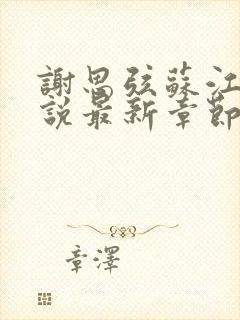 謝思弦蘇江
說最新章節
章澤